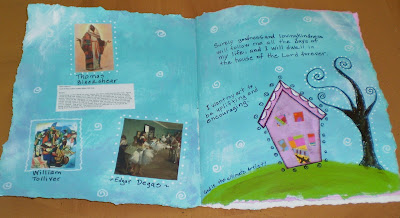 Thomas
Blackshear
William
Tolliver
~Edgar Degas~
Surely goodness and lovingkindness
will follow me all the days of
my life, and I will dwell in
the house of the Lord forever.
I want my art to
be uplifting and
encouraging.